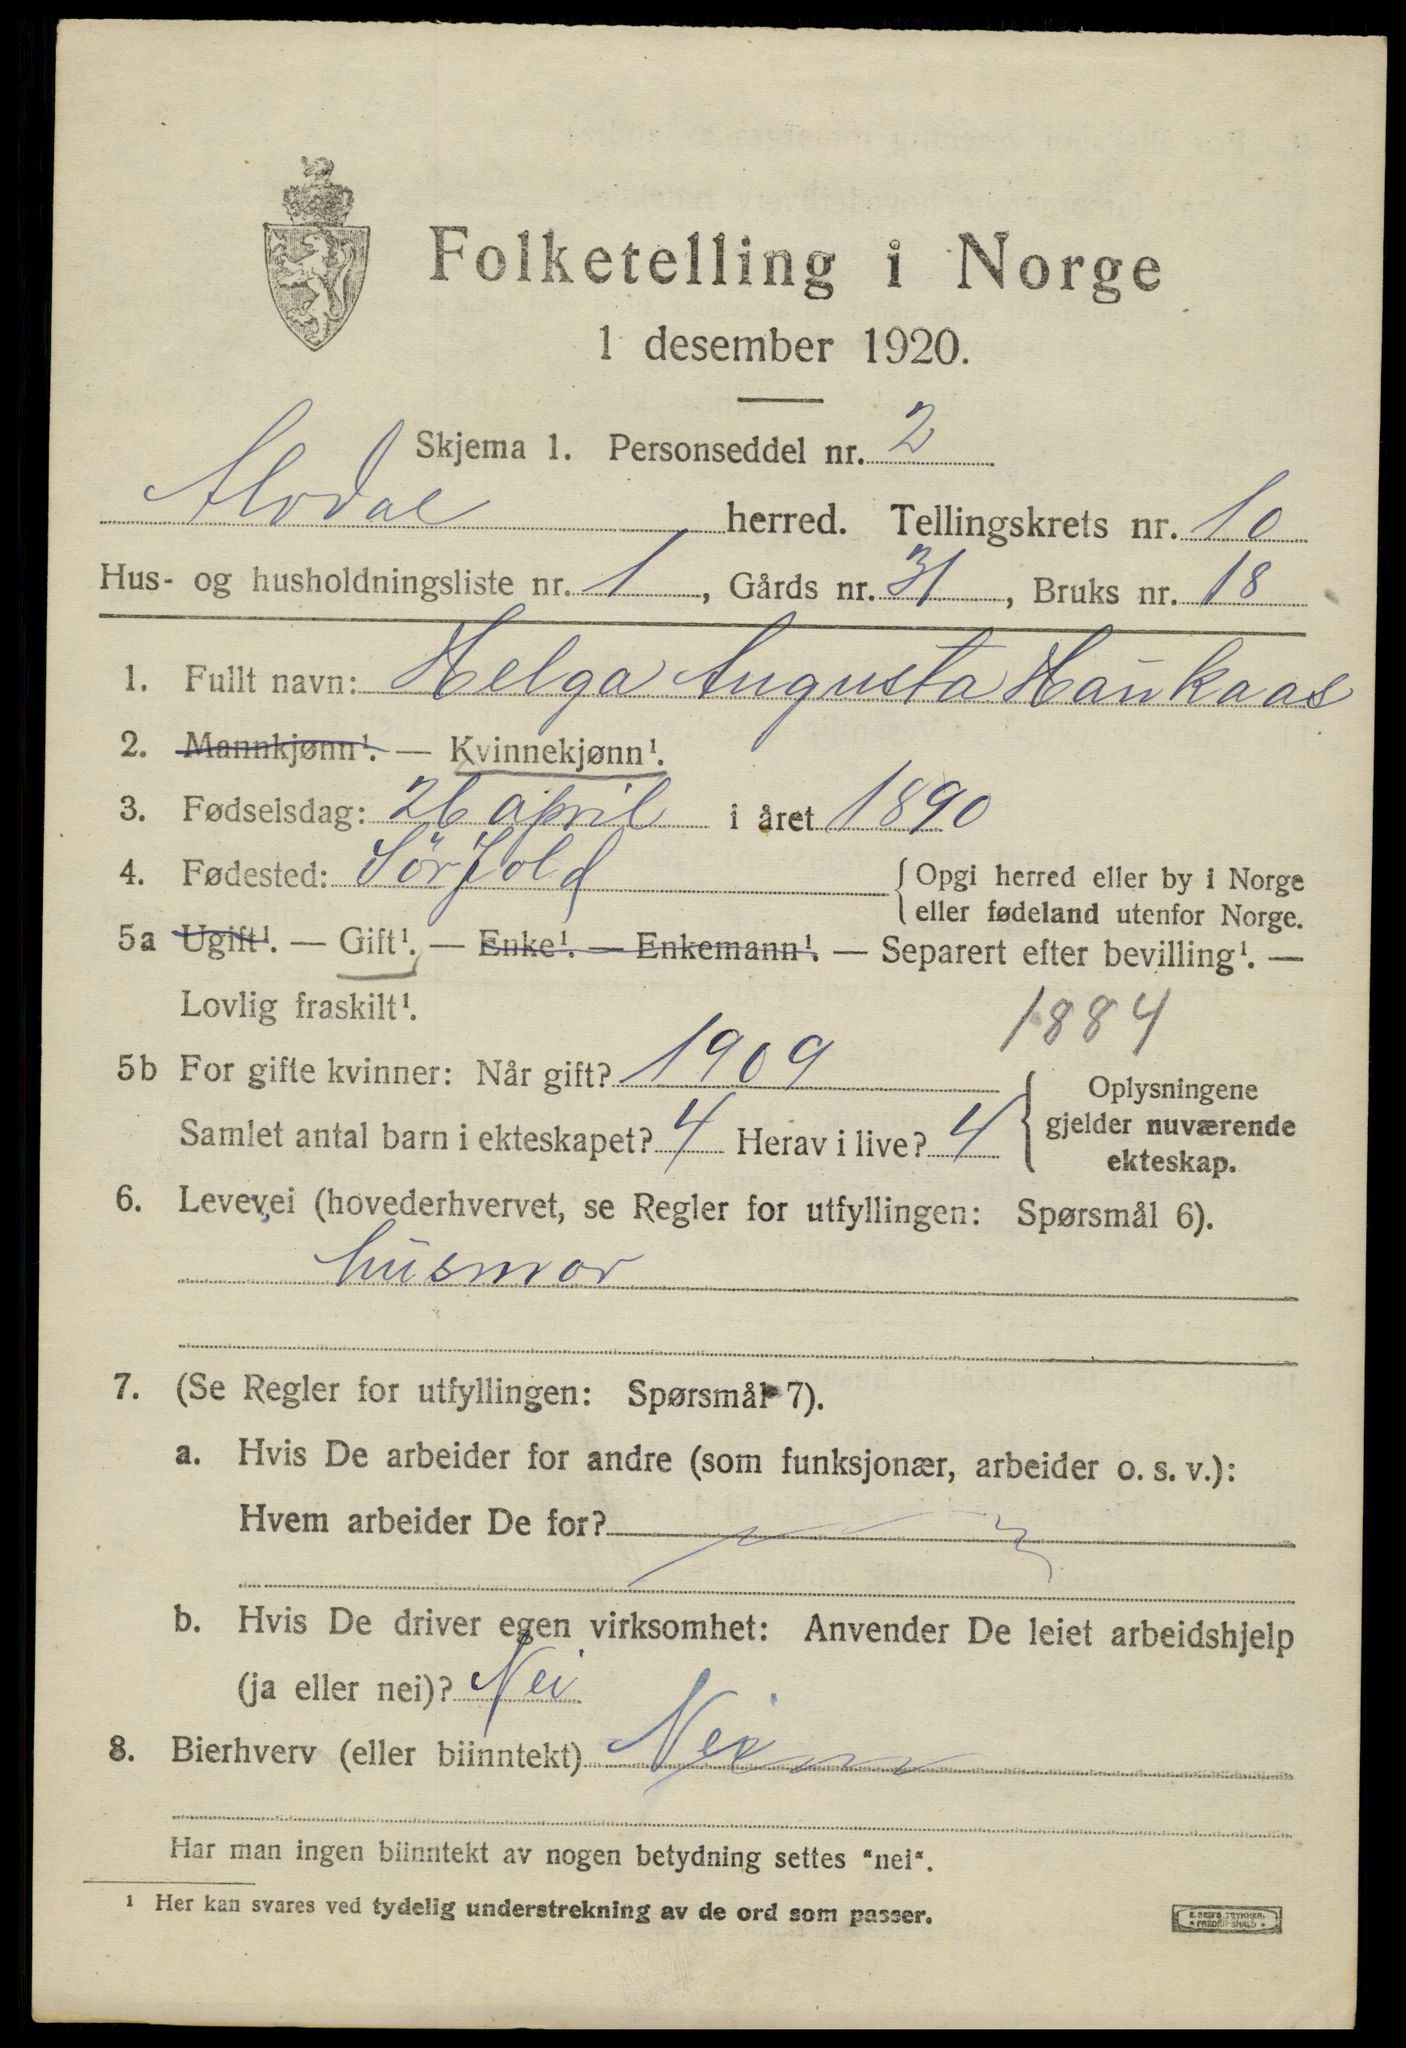 Folketelling i Norge
1 desember 1920.
Skjema 1. Personseddel nr. 2
Alvdal herred. Tellingskrets nr. 10
Hus- og husholdningsliste nr. 1, Gårds nr. 31, Bruks nr. 18
1. Fullt navn: Helga Augusta Haukaas
2. Mannkjønn¹. — Kvinnekjønn¹.
3. Fødselsdag: 26 april i året 1890
4. Fødested: Sörfold { Opgi herred eller by i Norge
eller fødeland utenfor Norge.
5a Ugift¹. — Gift¹. — Enke¹. — Enkemann¹. — Separert efter bevilling¹. —
Lovlig fraskilt¹. 1884
5b For gifte kvinner: Når gift? 1909 { Oplysningene
Samlet antal barn i ekteskapet? 4 Herav i live? 4 gjelder nuværende
ekteskap.
6. Levevei (hovederhvervet, se Regler for utfyllingen: Spørsmål 6).
husmor
7. (Se Regler for utfyllingen: Spørsmål 7).
a. Hvis De arbeider for andre (som funksjonær, arbeider o. s. v.):
Hvem arbeider De for?
b. Hvis De driver egen virksomhet: Anvender De leiet arbeidshjelp
(ja eller nei)? Nei
8. Bierhverv (eller biinntekt) Nei
Har man ingen biinntekt av nogen betydning settes "nei".
¹ Her kan svares ved tydelig understrekning av de ord som passer.